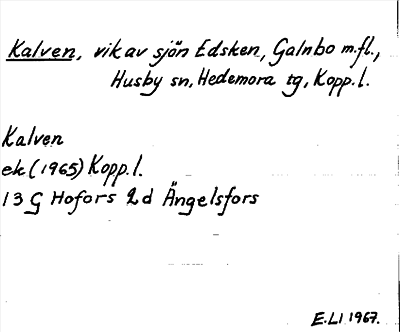 Kalven, vik av sjön Edsken, Galnbo m.fl.,
Husby sn, Hedemora tg, Kopp.l.
Kalven
ek (1965) Kopp.l.
13 G Hofors 2d Ängelsfors
E.LI 1967.